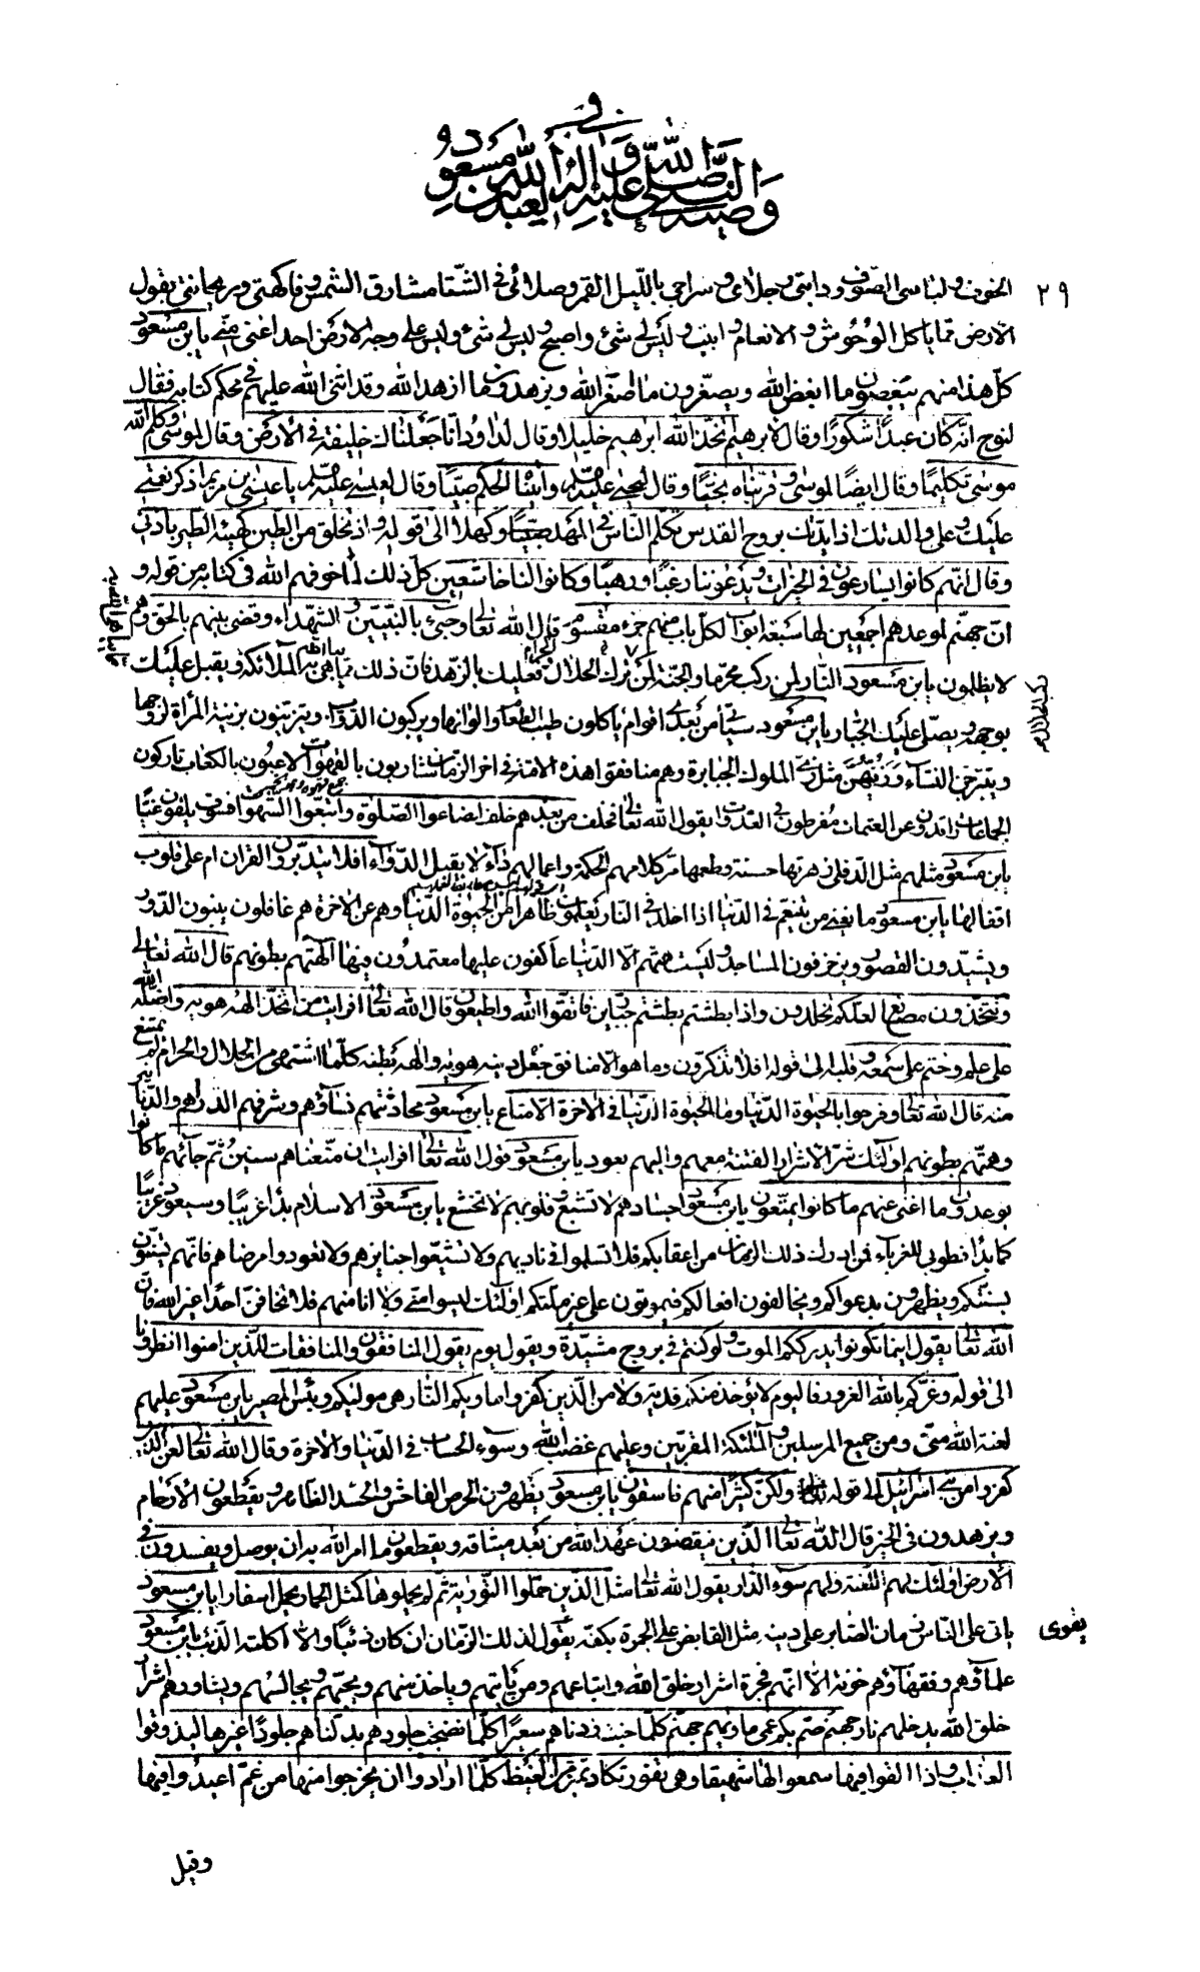 في
وصية النبي صلى الله عليه وآله لعبد الله بن مسعود
٢٩
الخوف ولباسي الصّوف ودابّتي رجلاي وسراجي باللّيل القمر وصلائي في الشّتا مشارق الشّمس وفاكهتي وريحانتي بقول
الأرض ممّا يأكل الوحُوش والانعام وابيت وليَس لي شئ واصبح وليس لي شئ وليس على وجه الأرض احد اغنى منّي يا بن مسعود
كلّ هذا منهم يبغضون ما ابغض الله ويصغّرون ما صغّر الله ويزهدون ما ازهد الله وقد اثنى الله عليهم في محكم كتابه فقال
لنوح انّه كان عبدًا شكورًا وقال لابرهيم اتّخذ الله ابرهيم خليلا وقال لداود انّا جَعَلناك خليفة في الأرض وقال لموسى وكلّم الله
موسى تكليمًا وقال ايضًا لموسى وقرّبناه نجيّا وقال ليحيى عليه السلم وآتيناه الحكم صبيّا وقال لعيسى عليه السلم يا عيسى بن مريم اذكر نعمتي
عليك وعلى والدتك اذ ايّدتك بروح القدس تكلّم النّاس في المهد وكهلا الى قوله واذ تخلق من الطّين كهيئة الطّير باذني
وقال انّهم كانوا يسارعون في الخيرات ويدعوننا رغبًا ورهبًا وكانوا لنا خاشعين كلّ ذلك لما خوفهم الله في كتابه من قوله و
انّ جهنّم لموعدهم اجمعين لها سبعة ابواب لكلّ باب منهم جزء مقسوم قال الله تعالى وجئ بالنّبيّين والشّهداء وقضى بينهم بالحق وهم
لا يظلمون يا بن مسعود النّار لمن ركب محرّما والجنّة لمن ترك الحلال فعليك بالزّهد فانّ ذلك ممّا يباهى الله به الملائكة ويقبل عليك
الحرام
بوجهه ويصلّى عليك الجبّار يا بن مسعود سيأتي من بعدي اقوام يأكلون طيب الطّعام والوانها ويركبون الدّوابّ ويتزيّنون بزينة المرأة لزوجها
ويتبرّجن النّساء وزيّهنّ مثل زيّ الملوك الجبابرة وهم منافقوا هذه الامّة في اخر الزّمان شاربون بالقهوات لاعبون بالكعاب تاركون
الجماعات راقدون عن العتمات مُفرطون في الغدوات يقول الله تعالى فخلف من بعدهم خلف اضاعوا الصّلوة واتّبعوا الشّهوات فسوف يلقون غيّا
يا بن مسعود مثلهم مثل الدّفلى زهرتها حسنة وطعمها مرّ كلامهم الحكمة واعمالهم داء لا يقبل الدّواء افلا يتدبّرون القران ام على قلوب
اقفالها يا بن مسعود ما يغني من يتنعّم في الدّنيا اذا اخلد في النّار يعلمون ظاهرا من الحيوة الدّنيا وهم عن الاخرة هم غافلون يبنون الدّور
ويشيّدون القصور ويزخرفون المساجد وليست همّتهم الّا الدّنيا عاكفون عليها معتمدون فيها آلهتهم بطونهم قال الله تعالى
وتتّخذون مصانع لعلّكم تخلدون واذا بطشتم بطشتم جبّارين فاتّقوا الله واطيعون قال الله تعالى افرايت من اتّخذ الهه هويه واضلّه الله
على علم وختم على سمعه وقلبه الى قوله افلا تذكّرون وما هو الا منافق جعل دينه هويه والهه بطنه كلّما اشتهى من الحلال والحرام لم يمتنع
منه قال الله تعالى وفرحوا بالحيوة الدّنيا وما الحيوة الدّنيا في الاخرة الا متاع يا بن مسعود محاد يبهم نساؤهم وشرفهم الدّراهم والدّنانير
وهمّتهم بطونهم اولئك شرّ الأشرار الفتنة معهم واليهم يعود يا بن مسعود قول الله تعالى افرايت ان متّعناهم سنين ثمّ جآئهم ما كانوا
يوعدون ما اغنى عنهم ما كانوا يمتّعون يا بن مسعود اجسادهم لا تشبع وقلوبهم لا تخشع يا بن مسعود الاسلام بدأ غريبًا وسيعود غريبًا
كما بدأ فطوبى للغرباء فمن ادرك ذلك الزمان من اعقابكم فلا تسلموا في ناديهم ولا تشيّعوا جنايزهم ولا تعودوا مرضاهم فانّهم يستنّون
بسنّتكم ويظهرون بدعواكم ويخالفون افعالكم فيموتون على غير ملّتكم اولئك ليسوا منّي ولا انا منهم فلا تخافنّ احدًا غير الله فانّ
الله تعالى يقول اينما تكونوا يدرككم الموت ولو كنتم في بروج مشيّدة ويقول يوم يقول المنافقون والمنافقات للّذين امنوا انظرونا
الى قوله وغرّكم بالله الغرور فاليوم لا يؤخذ منكم فدية ولا من الّذين كفروا مأويكم النّار هي موليكم وبئس المصير يا بن مسعود عليهم
لعنة الله منّي ومن جميع المرسلين والملئكة المقرّبين وعليهم غضب الله وسوء الحساب في الدّنيا والاخرة وقال الله تعالى لعن الذين
كفروا من بني اسرائيل الى قوله ولكنّ كثيرًا منهم فاسقون يا بن مسعود يظهرون الحرص الفاحش والحسد الظّاهر ويقطعون الأرحام
ويزهدون في الخير قال الله تعالى الّذين ينقضون عهد الله من بعد ميثاقه ويقطعون ما امر الله به ان يوصل ويفسدون في
الأرض اولئك لهم اللعنة ولهم سوء الدّار يقول الله تعالى مثل الّذين حمّلوا التّورية ثمّ لم يحملوها كمثل الحمار يحمل اسفارا يا بن مسعود
يأتي على النّاس زمان الصّابر على دينه مثل القابض على الجمرة بكفّه يقول لذلك الزمان ان كان ذئبًا والا اكلته الذّئب يا بن مسعود
يقوى
علماؤهم وفقهاؤهم خونة الا انّهم فجرة اشرار خلق الله واتباعهم ومن يأتيهم وياخذ منهم ويحبّهم ويجالسهم ويشاورهم اشرار
خلق الله يدخلهم نار جهنّم صمّ بكم عمى مأويهم جهنّم كلّما خبت زدناهم سعيرًا كلّما نضجت جلودهم بدّلناهم جلودًا غيرها ليذوقوا
العذاب واذا القوا فيها سمعوا لها شهيقا وهي تفور تكاد تميّز من الغيظ كلّما ارادوا ان يخرجوا منها من غمّ اعيدوا فيها
وقيل